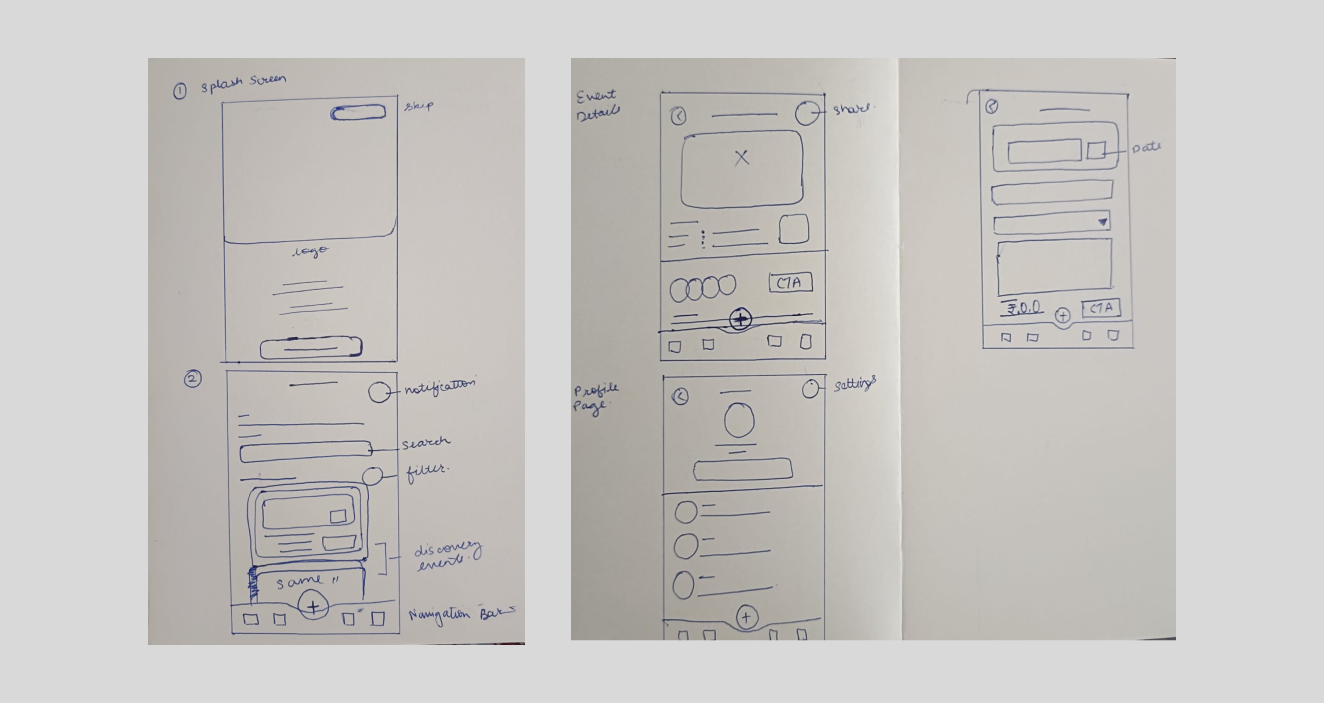 ① Splash Screen
skip
Logo
②
notification
Search
filter.
discovery
events.
Same "
Navigation Bars
Event
Details
Share.
X
CTA
Profile
Page.
Settings
Date
₹0.0
CTA